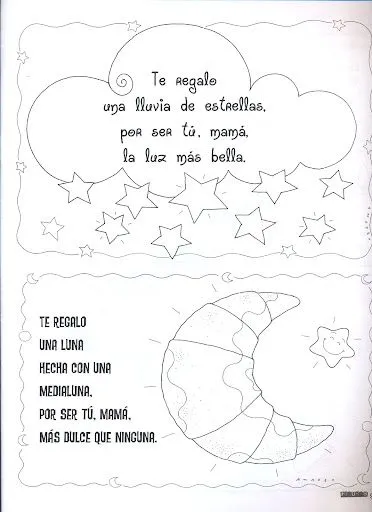 Te regalo
una lluvia de estrellas,
por ser tú, mamá,
la luz más bella.
TE REGALO
UNA LUNA
HECHA CON UNA
MEDIALUNA,
POR SER TÚ, MAMÁ,
MÁS DULCE QUE NINGUNA.